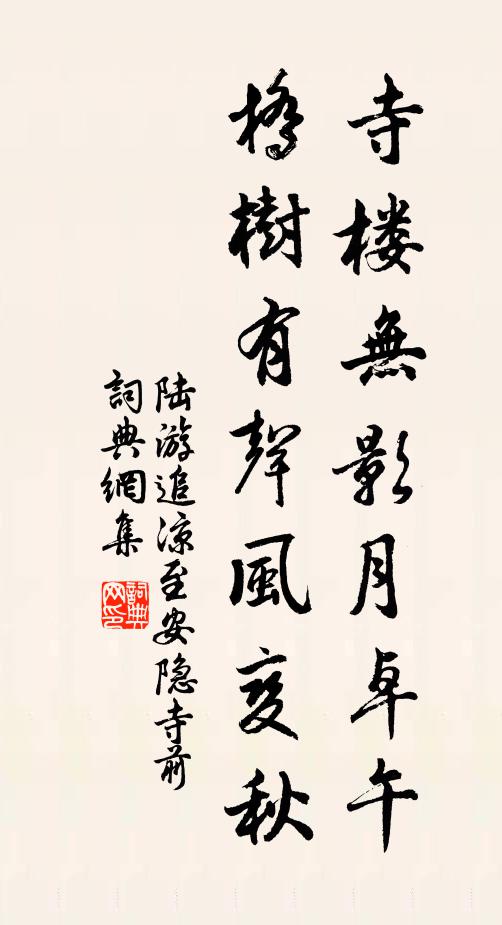 寺楼無影月卓午
橋樹有聲風變秋
陆游追凉至安隐寺前
詞典網集
詞典网印